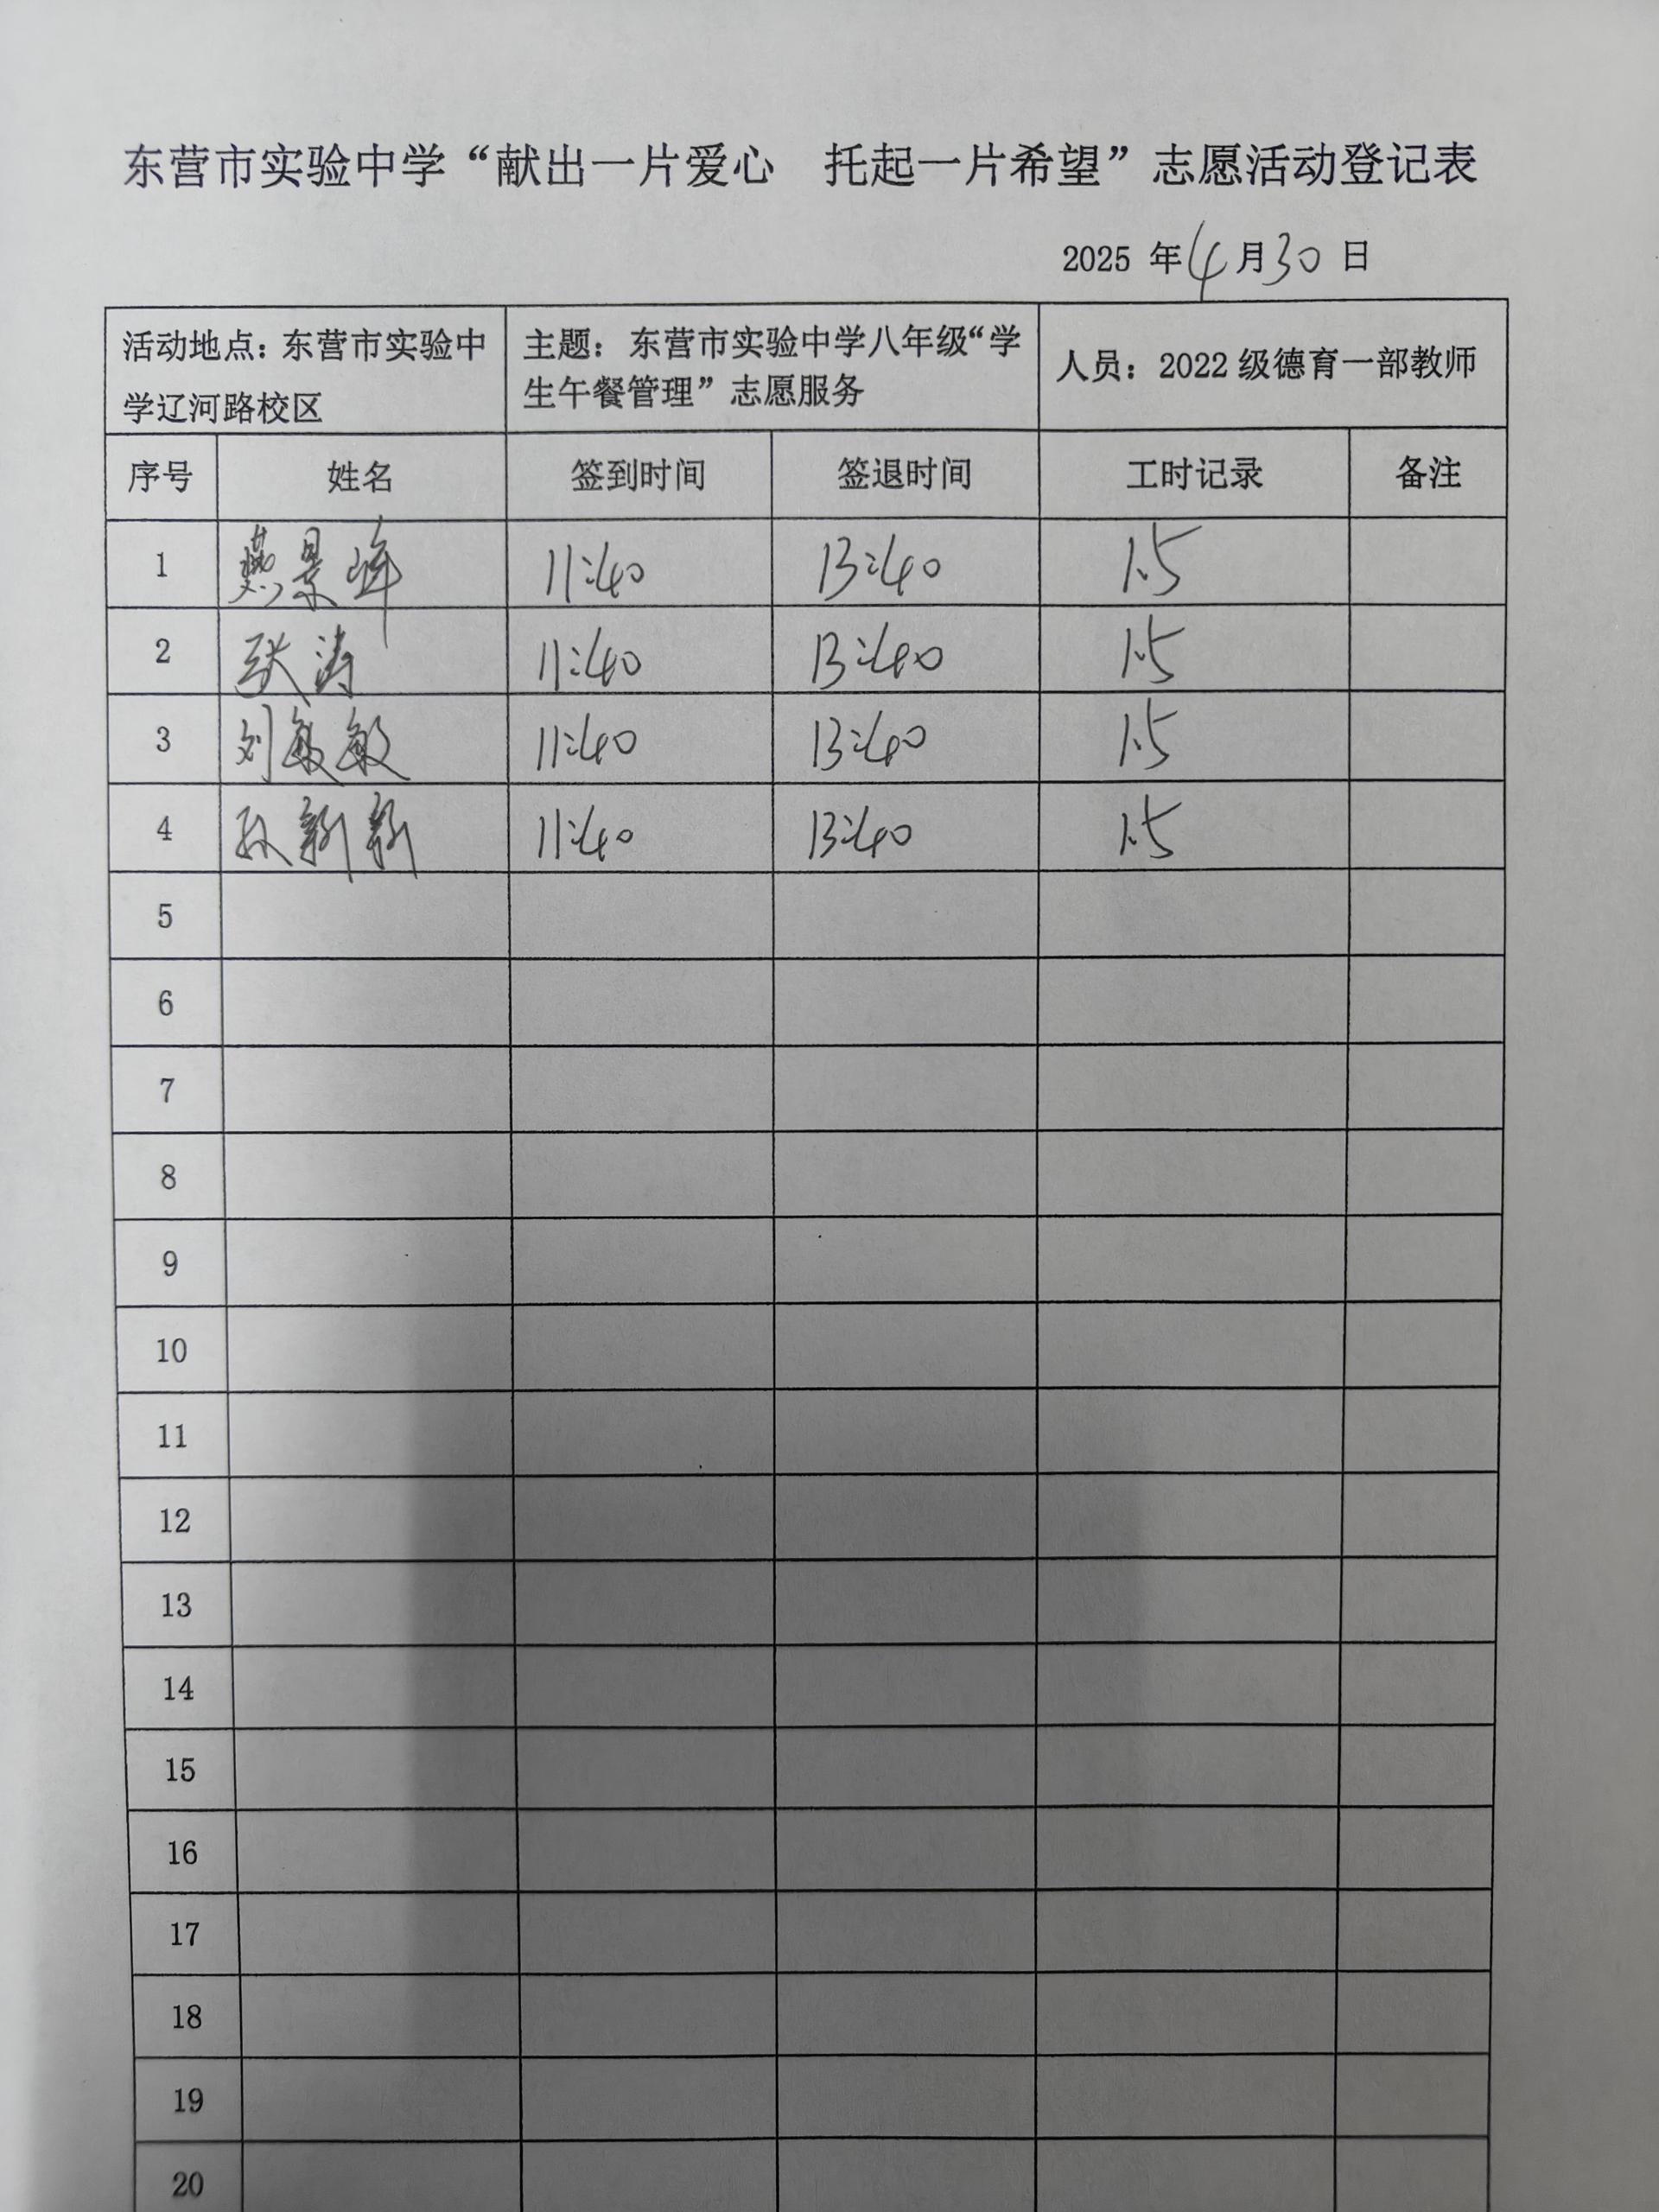 东营市实验中学“献出一片爱心 托起一片希望”志愿活动登记表
2025 年 4 月 30 日
活动地点：东营市实验中
学辽河路校区
主题：东营市实验中学八年级“学
生午餐管理”志愿服务
人员：2022 级德育一部教师
序号 姓名 签到时间 签退时间 工时记录 备注
1 燕景峰 11:40 13:40 1.5
2 张涛 11:40 13:40 1.5
3 刘敏敏 11:40 13:40 1.5
4 孙新新 11:40 13:40 1.5
5
6
7
8
9
10
11
12
13
14
15
16
17
18
19
20